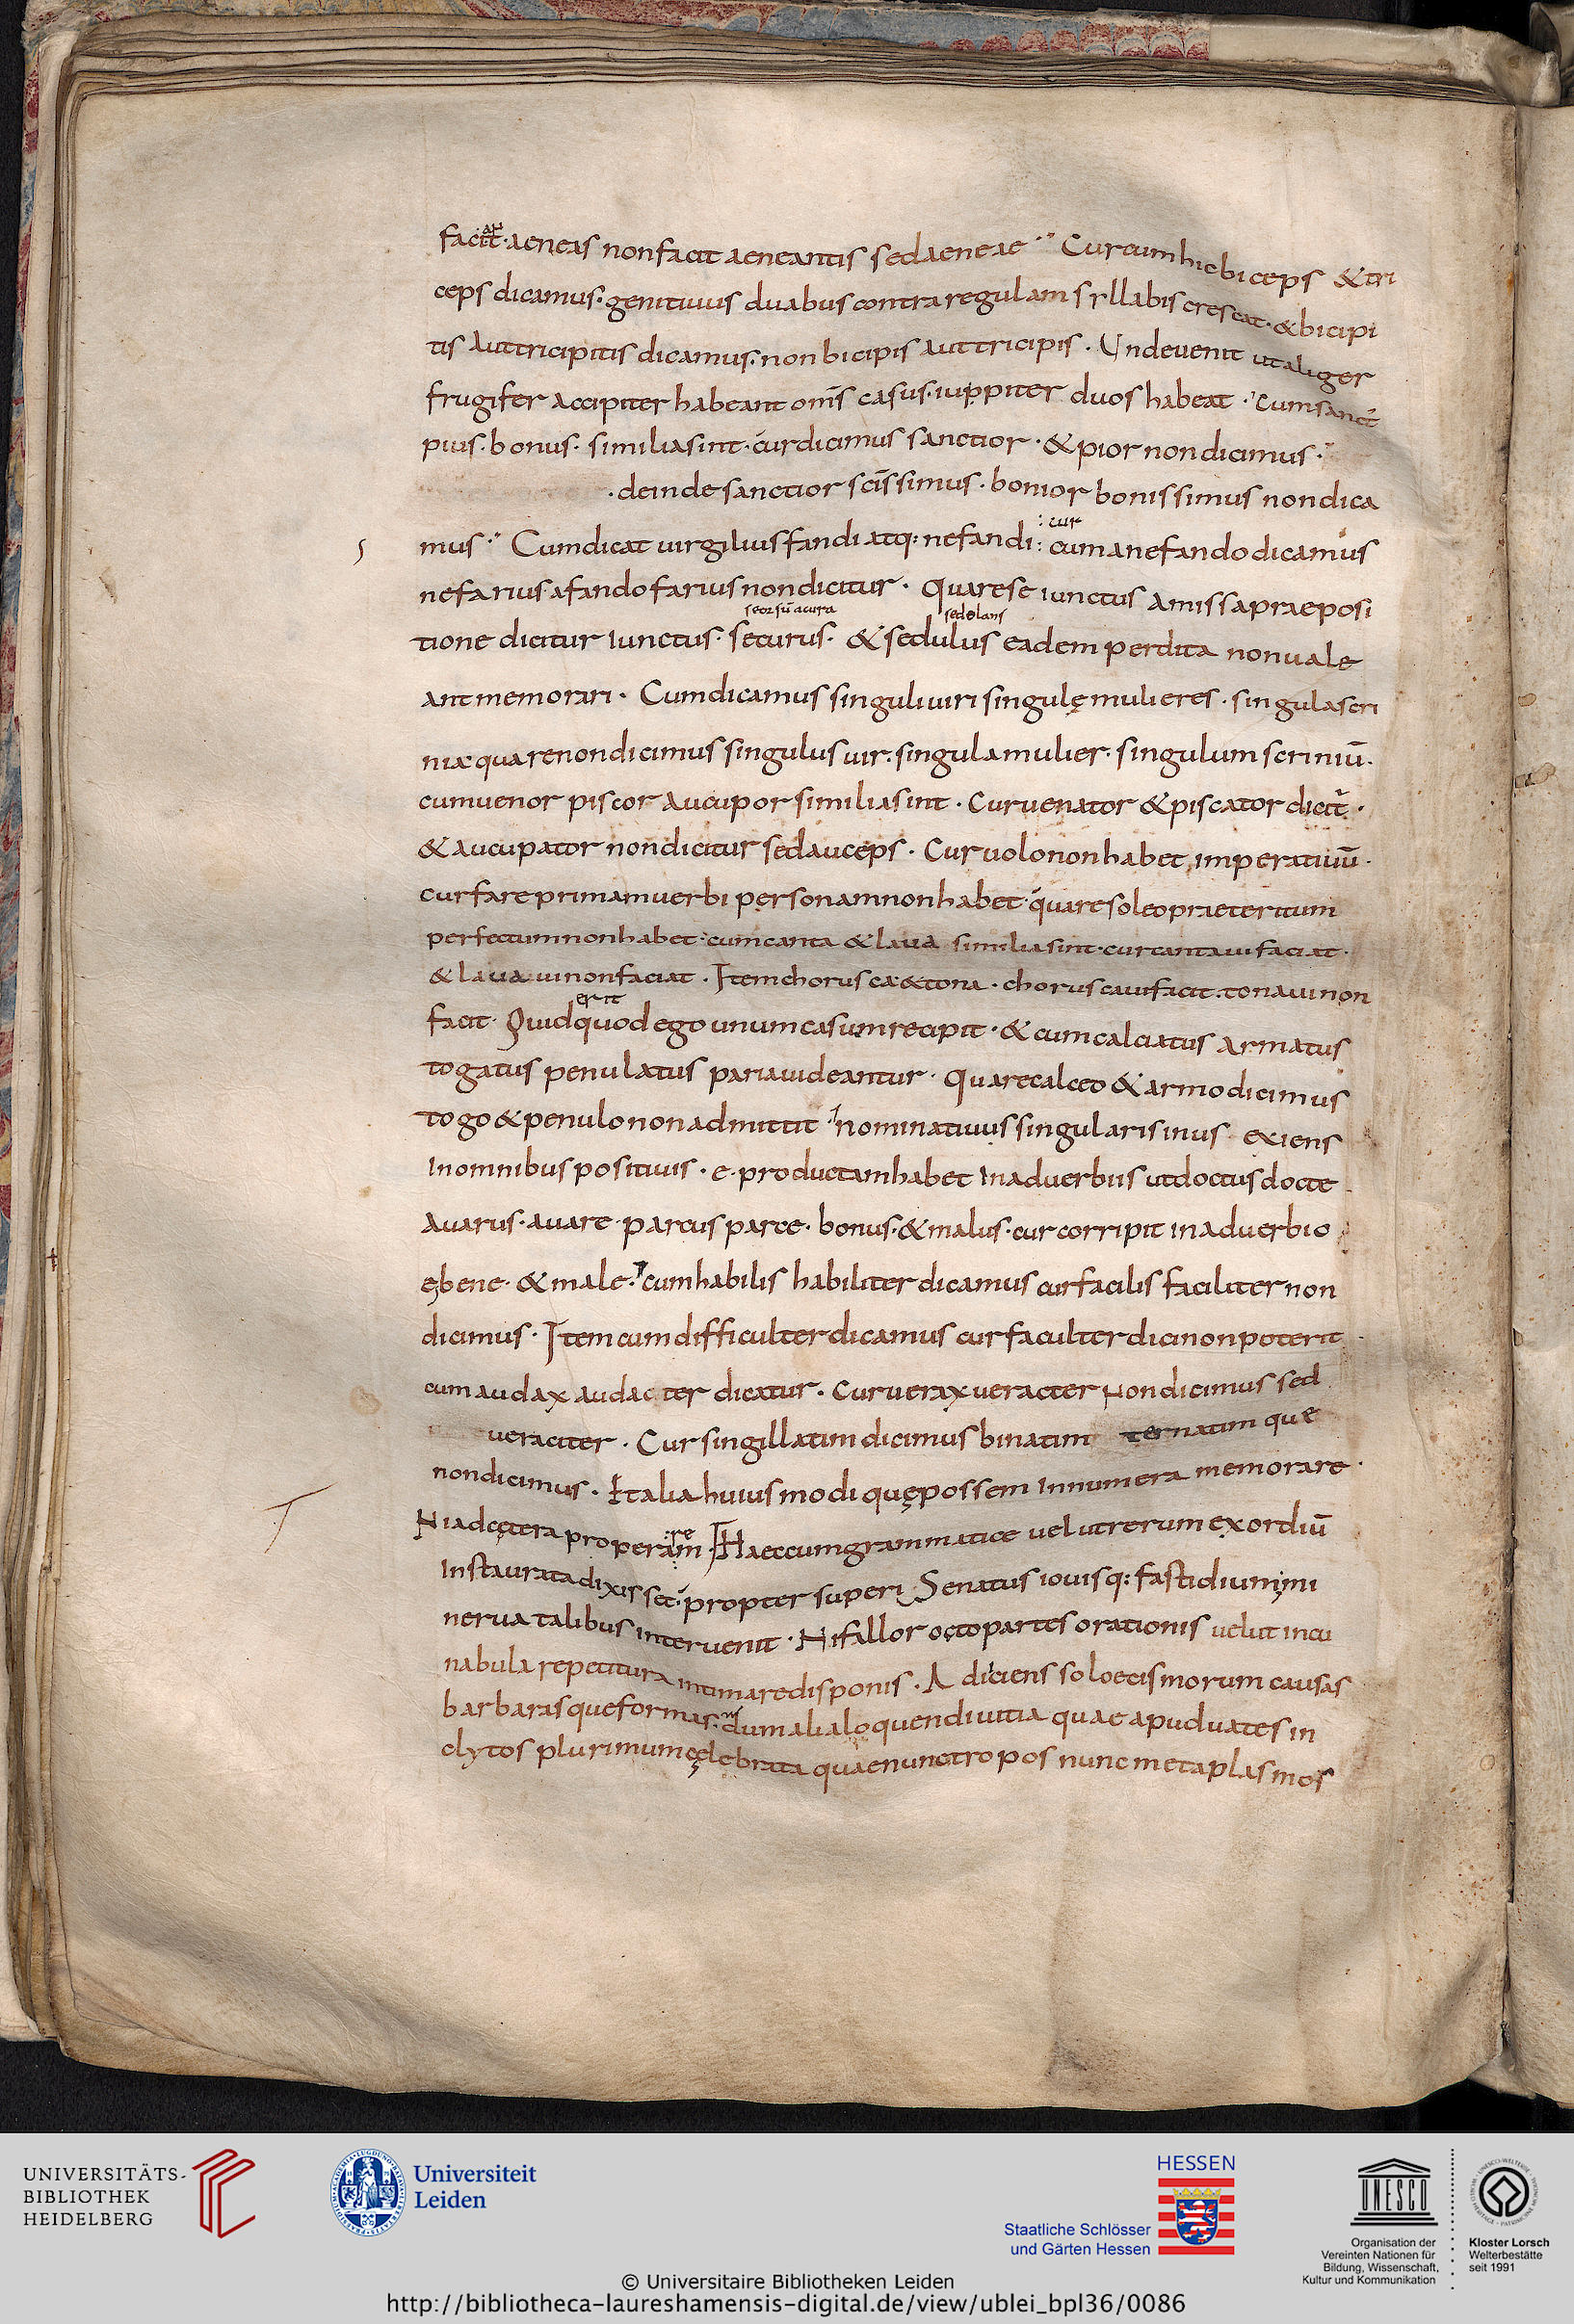 facit̄ · aeneas non facit aeneantis sed aeneae · Cur cum hic biceps & tri
ceps dicamus · genitivus duabus contra regulam syllabis crescat · & bicipi
tis aut tricipitis dicamus · non bicipis aut tricipis · Unde venit ut aliger
frugifer accipiter habeant om̄s casus · iuppiter duos habeat · Cum sanct̄
pius · bonus · similia sint · cur dicimus sanctior · & pior non dicimus ·
· deinde sanctior sc̄issimus · bonior bonissimus non dica
mus · Cum dicat virgilius fandi atq: nefandi : cum a nefando dicamus
cur
nefarius · a fando farius non dicitur · Quare seiunctus amissa praeposi
seorsū a cura sedolans
tione dicitur iunctus · securus · & sedulus eadem perdita non vale
ant memorari · Cum dicamus singuli viri singulę mulieres · singula scri
nia quare non dicimus singulus vir · singula mulier · singulum scriniū ·
cum venor piscor aucupor similia sint · Cur venator & piscator dicit̄ ·
& aucupator non dicitur sed auceps · Cur volo non habet imperativū ·
cur fare primam verbi personam non habet · quare soleo praeteritum
perfectum non habet · cum canta & lava similia sint · cur cantavi faciat ·
& lavavi non faciat · Item chorus ca & tona · choruscavi facit · tonavi non
erit
facit · Quid quod ego unum casum recipit · & cum calciatus armatus
togatus penulatus paria videantur · Quare calceo & armo dicimus
togo & penulo non admittit · nominativus singularis in us exiens
In omnibus positivis · e · productam habet In adverbiis ut doctus docte
Avarus · avare · parcus parce · bonus · & malus · cur corripit in adverbio
ę bene · & male · cum habilis habiliter dicamus cur facilis faciliter non
dicimus · Item cum difficulter dicamus cur faculter dici non poterit
cum audax audacter dicatur · Cur verax veracter non dicimus sed
veraciter · Cur singillatim dicimus binatim ternatim que
non dicimus · Et alia huiusmodi quę possem Innumera memorare ·
re
Ni ad cętera properam · Haec cum grammatice velut rerum exordiū
Instaurata dixisset · propter superi Senatus iovisq: fastidium mi
nerva talibus intervenit · Ni fallor octo partes orationis velut incu
nabula repetitura intimare disponis · Adiciens soloecismorum causas
barbarasque formas · dum alia loquendi vitia quae apud vates in
clytos plurimum cęlebrata quae nunc tropos nunc metaplasmos
UNIVERSITÄTS-
BIBLIOTHEK
HEIDELBERG
Universiteit
Leiden
HESSEN
Staatliche Schlösser
und Gärten Hessen
UNESCO
Organisation der
Vereinten Nationen für
Bildung, Wissenschaft,
Kultur und Kommunikation
Kloster Lorsch
Welterbestätte
seit 1991
© Universitaire Bibliotheken Leiden
http://bibliotheca-laureshamensis-digital.de/view/ublei_bpl36/0086